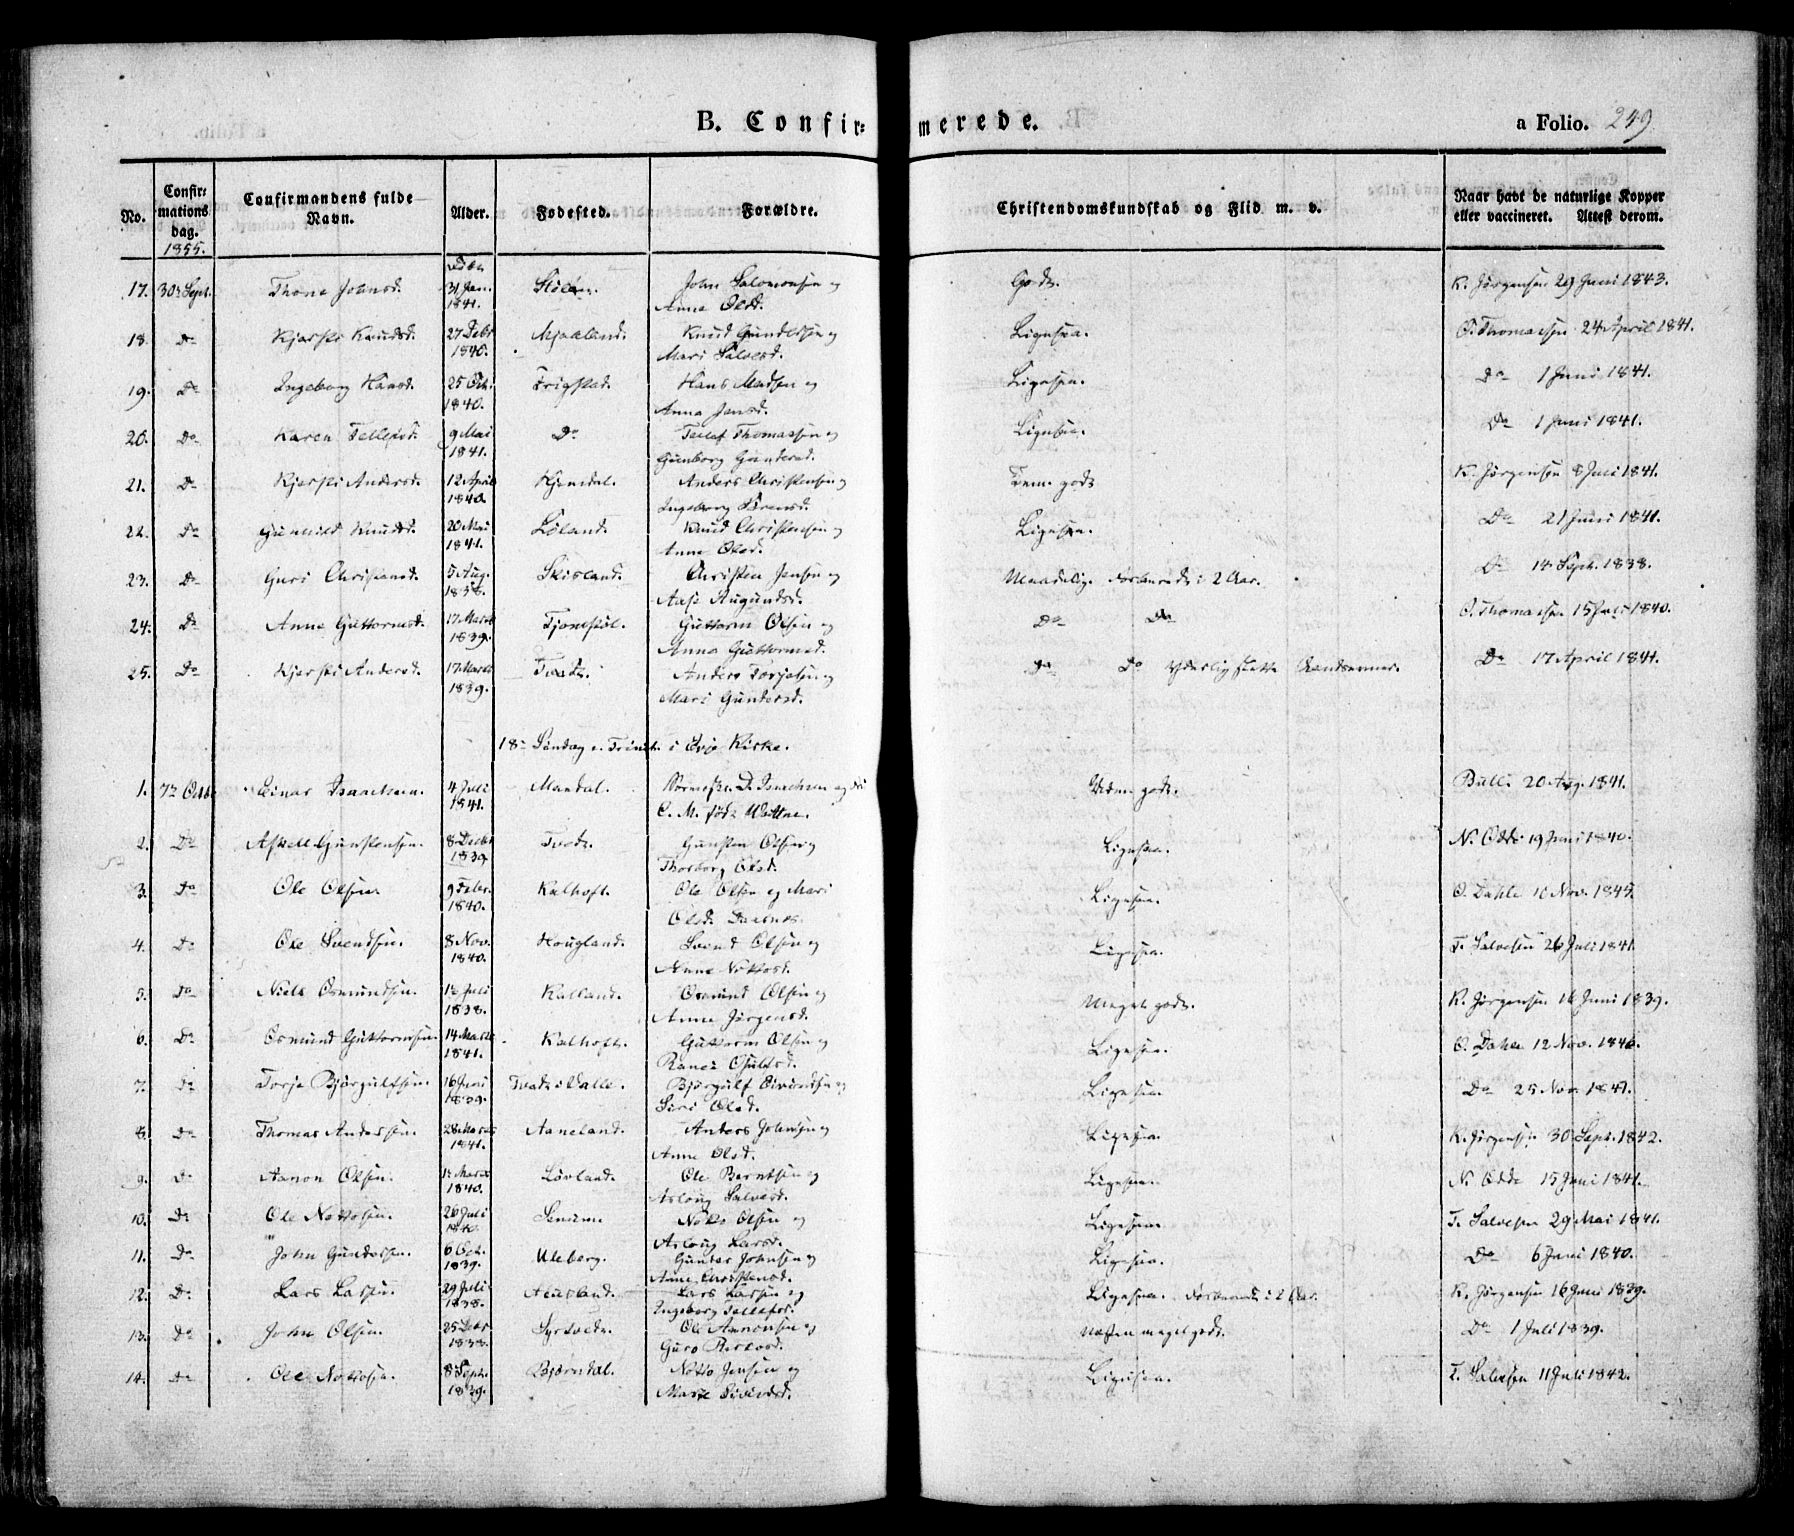 B. Confir= merede. a Folio. 249
No. Confir= mations dag. 1855. Confirmandens fulde Navn. Alder. Fødested. Forældre. Christendomskundskab og Flid m. v. Naar havt de naturlige Kopper eller vaccineret. Attest derom.
17. 30te Sept. Thone Johnsd. 31 Jan. 1841. John Salomonsen og Anne Olsd. Godt. K. Jørgensen 29 Juni 1843.
18. Do Kjersti Knudsd. 27 Debr 1840. Mjaaland. Knud Gundersen og Mari Salvesd. Ligesaa. O. Thomassen 24 April 1841.
19. Do Ingeborg Hansd. 25 Oct. 1840. Frigstad. Hans Madsen og Anna Jensd. Ligesaa. Do 1 Juni 1841.
20. Do Karen Tellefsd. 9 Mai 1841. Do Tellef Thomassen og Gunborg Gundersd. Ligesaa. Do 1 Juni 1841.
21. Do Kjersti Andersd. 12 April 1840. Anders Christensen og Ingeborg Sørensd. Tem. godt K. Jørgensen 8 Juli 1841.
22. Do Gunhild Knudsd. 20 Mai 1841. Løland. Knud Christensen og Anne Olsd. Ligesaa. Do 21 Juni 1841.
23. Do Guri Christensd. 5 Aug. 1838. Skisland. Christen Jensen og Aase Augundsd. Maadelig. Forberedt i 2 Aar. Do 14 Sept. 1838.
24. Do Anne Guttormsd. 17 Marts 1839. Guttorm Olsen og Anna Guttormsd. Do Do O. Thomassen 15 Juli 1840.
25. Do Kjersti Andersd. 17 Marts 1839. Tvedt. Anders Torjesen og Mari Gundersd. Do Do Yderlig slette Aandsevner. Do 17 April 1841.
18de Søndag e. Trinit. i Evje Kirke.
1. 7de Octb. Einar Isaachsen. 4 Juli 1841. Mandal. D. Isaachsen og C. M. født Wattne. Udm. godt. Bull 20 Aug. 1841.
2. Do Askell Gunstensen. 8 Decbr 1839. Tvedt. Gunsten Olsen og Thorborg Olsd. Ligesaa. N. Odde 19 Juni 1840.
3. Do Ole Olsen. 9 Febr. 1840. Kalhoft. Ole Olsen og Mari Olsd. Ligesaa. O. Dahle 10 Nov. 1845.
4. Do Ole Svendsen. 8 Nov. 1840. Hougland. Svend Olsen og Anne Nottosd. Ligesaa. T. Salvesen 26 Juli 1841.
5. Do Niels Osmundsen. Juli 1838. Kalland. Osmund Olsen og Anne Jørgensd. Meget godt. K. Jørgensen 16 Juni 1839.
6. Do Osmund Guttormsen. 14 Marts 1841. Kalhoft. Guttorm Olsen og Ligesaa. O. Dahle 12 Nov. 1846.
7. Do Torje Bjørgulfsen. 16 Juni 1839. Tvedt i Valle. Bjørgulf Eivindsen og Siri Olsd. Ligesaa. Do 25 Nov. 1847.
8. Do Thomas Andersen. 28 Marts 1841. Aaneland. Anders Johnsen og Anne Olsd. Ligesaa. K. Jørgensen 30 Sept. 1842.
9. Do Aanon Olsen. Marts 1840. Løvland. Ole Berntsen og Asloug Salvesd. Ligesaa. N. Odde 15 Juni 1841.
10. Do Ole Nottosen. 26 Juli 1840. Senum Notto Olsen og Asloug Larsd. Ligesaa. T. Salvesen 29 Mai 1841.
11. Do John Gundersen. 6 Oct. 1839. Uleberg. Gunder Johnsen og Anne Christensd. Ligesaa. Do 6 Juni 1840.
12. Do Lars Larsen. 29 Juli 1838. Lars Larsen og Ingeborg Tellefsd. Ligesaa. Forberedt i 2 Aar. K. Jørgensen 16 Juni 1839.
13. Do John Olsen. 25 Debr 1838. Syrtvedt. Ole Aanonsen og Guro Næsten meget godt. Do 1 Juli 1839.
14. Do Ole Nottosen. 8 Sept. 1839. Bjørndal. Notto Jensen og Marie Ligesaa. T. Salvesen 11 Juli 1842.